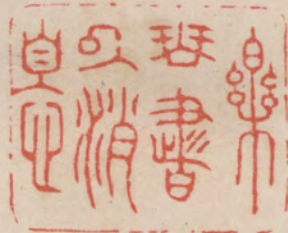 樂
琴書
以消
憂